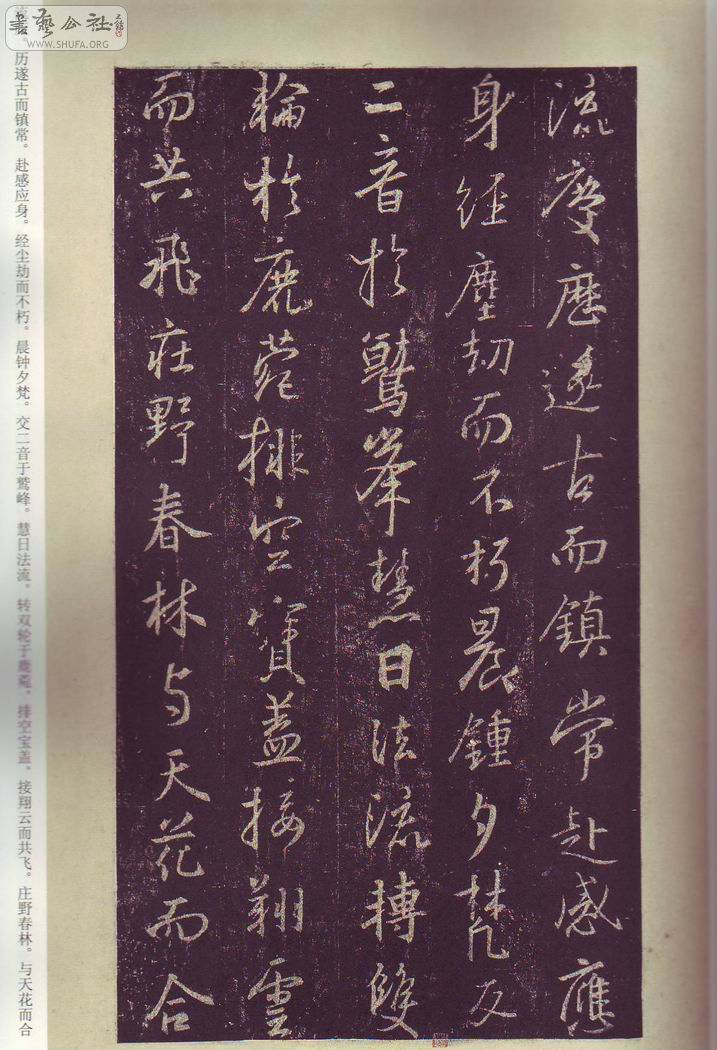 流慶歷遂古而鎮常赴感應
身經塵劫而不朽晨鍾夕梵交
二音於鷲峯慧日法流轉雙
輪於鹿菀排空寶蓋接翔雲
而共飛莊野春林与天花而合
历遂古而镇常。赴感应身。经尘劫而不朽。晨钟夕梵。交二音于鹫峰。慧日法流。转双轮于鹿菀。排空宝盖。接翔云而共飞。庄野春林。与天花而合
書藝公社
WWW.SHUFA.ORG